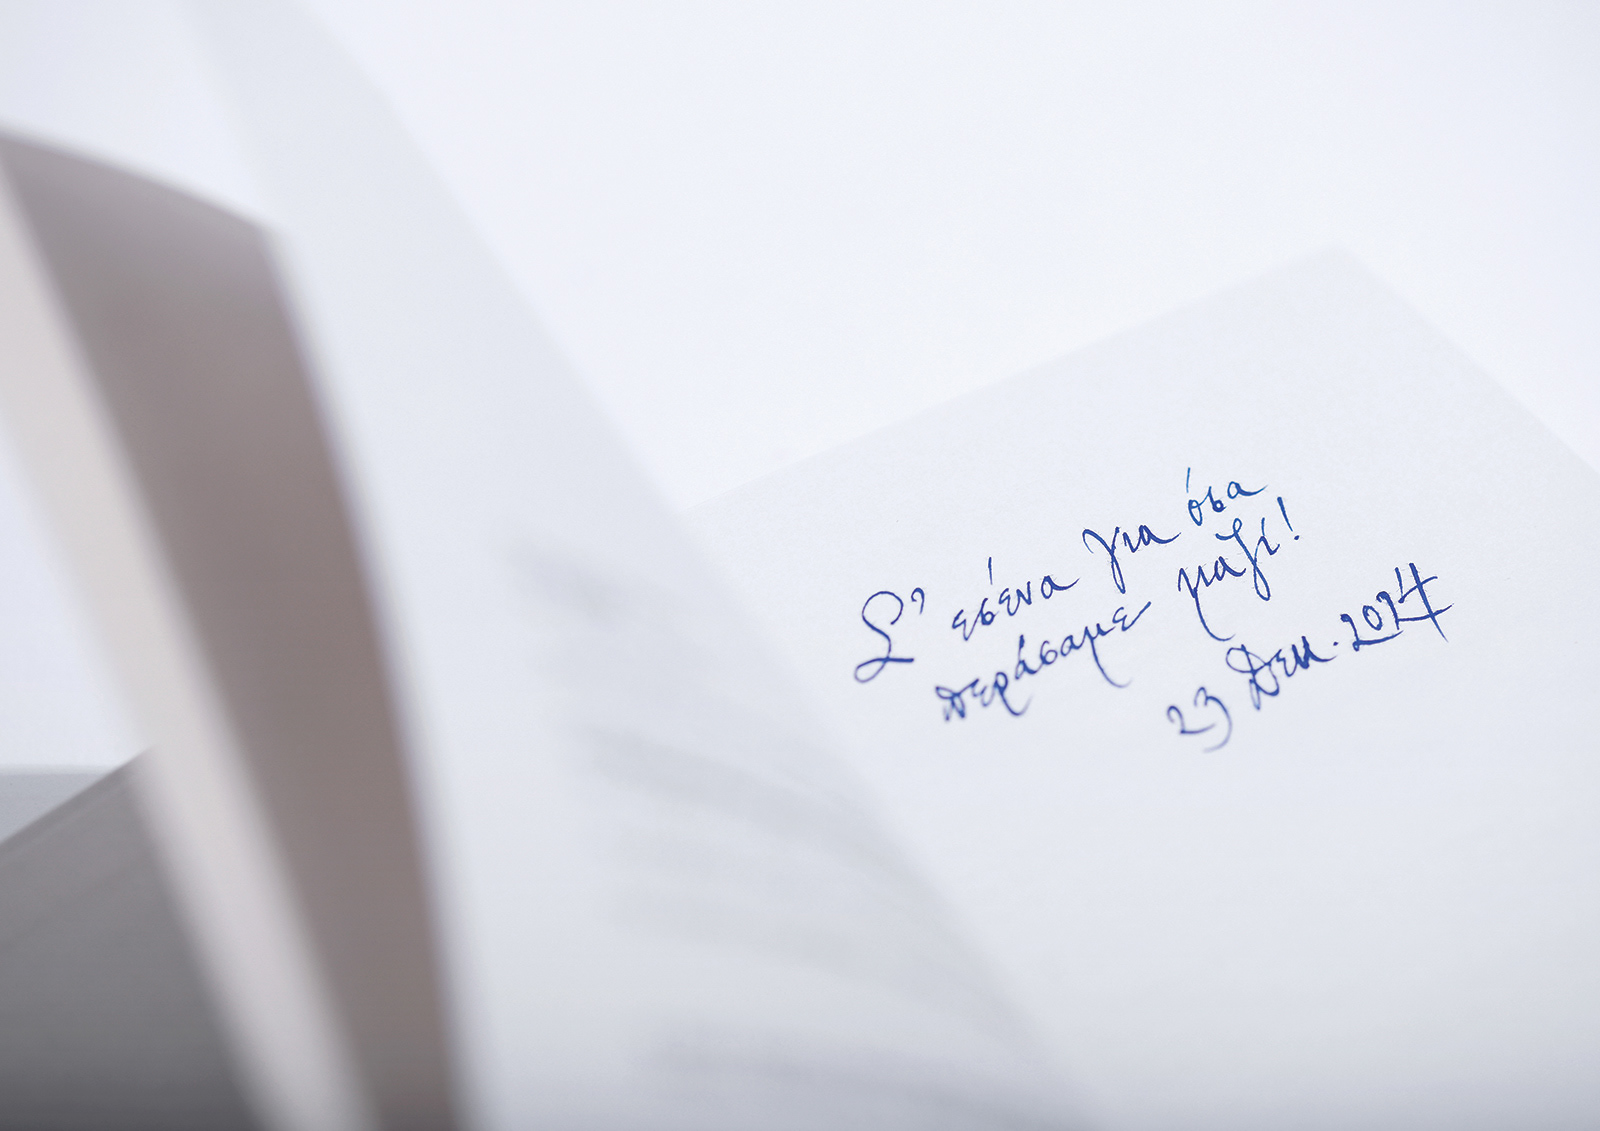 Σ' εσένα για όσα
περάσαμε μαζί!
23 Δεκ. 2024